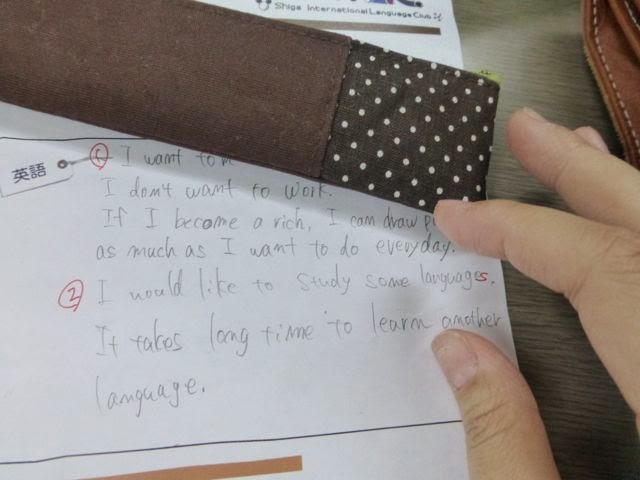 Shiga International Language Club
英語
① I want to
I don't want to work.
If I become a rich, I can draw
as much as I want to do everyday.
② I would like to study some languages.
It takes long time to learn another
language.